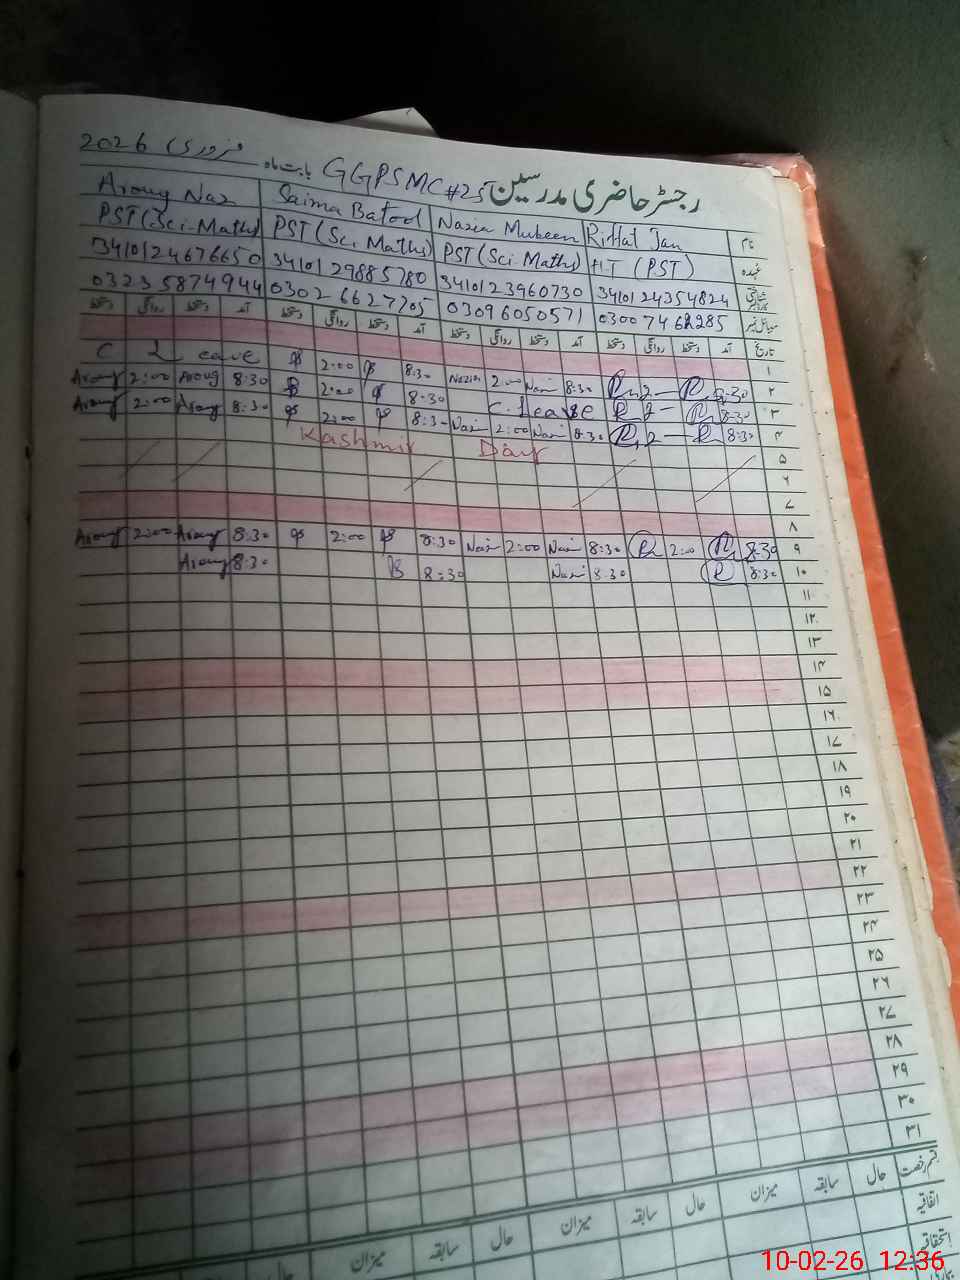 رجسٹر حاضری مدرسین GGPSMC#25 بابت ماہ فروری 2026
نام Riffat Jan Nazia Mubeen Saima Batool Aroug Naz
عہدہ HT (PST) PST (Sci Maths) PST (Sc. Maths) PST (Sci-Maths)
شناختی کارڈ نمبر 3410124354824 3410123960730 3410129885780 3410124676650
موبائل نمبر 03007462285 03096050571 03026627705 03235874944
تاریخ آمد دستخط روانگی دستخط آمد دستخط روانگی دستخط آمد دستخط روانگی دستخط آمد دستخط روانگی دستخط
۱
۲ 8:30 R 2 — R 8:30 Nazi 2:00 Nazi 8:30 2:00 C Leave
۳ 8:30 R 2 — R C. Leave 8:30 2:00 8:30 Aroug 2:00 Aroug
۴ 8:30 R 2 — R 8:30 Nazi 2:00 Nazi 8:30 2:00 8:30 Aroug 2:00 Aroug
۵ Kashmir Day
۶
۷
۸
۹ 8:30 R 2:00 R 8:30 Nazi 2:00 Nazi 8:30 2:00 8:30 Aroug 2:00 Aroug
۱۰ 8:30 R 8:30 Nazi 8:30 8:30 Aroug
۱۱
۱۲
۱۳
۱۴
۱۵
۱۶
۱۷
۱۸
۱۹
۲۰
۲۱
۲۲
۲۳
۲۴
۲۵
۲۶
۲۷
۲۸
۲۹
۳۰
۳۱
قسم رخصت حال سابقہ میزان حال سابقہ میزان حال سابقہ میزان حال
اتفاقیہ
استحقاقی
10-02-26 12:36